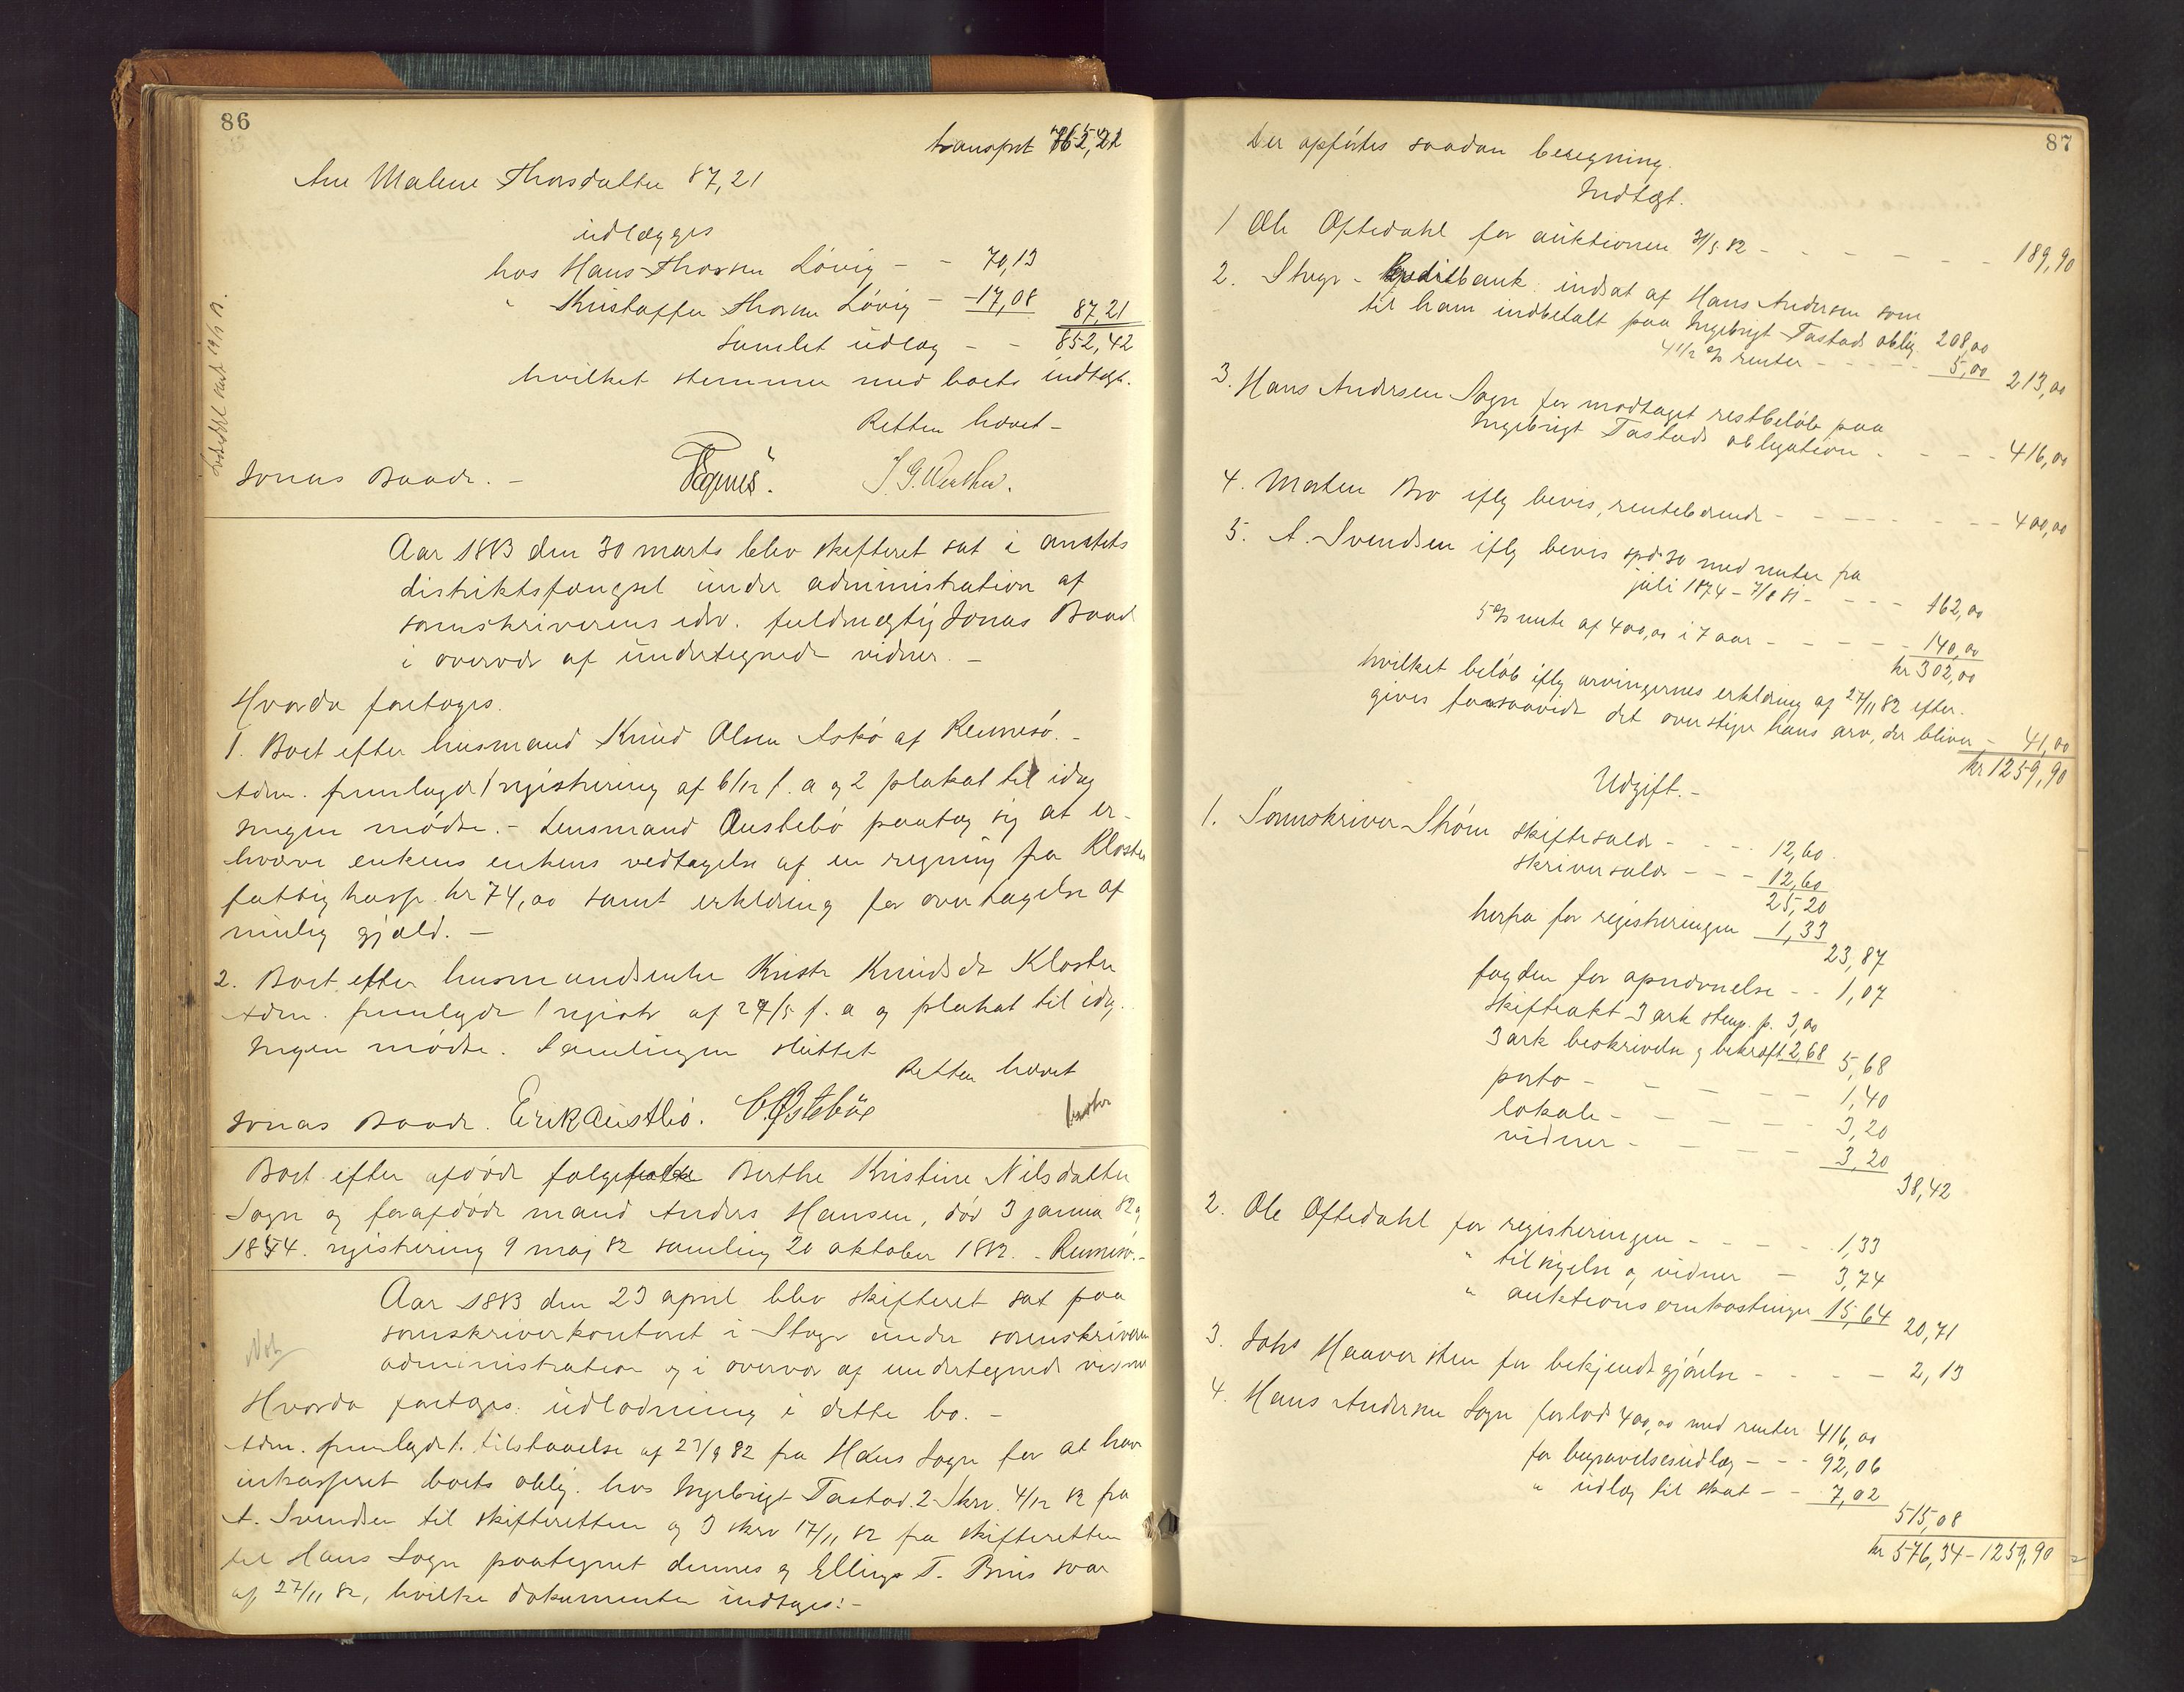 86
transport 765,21
Ane Malene Thorsdatter 87,21
udlægges
hos Hans Thorsen Løvig - - 70,13
" Kristoffer Thorsen Løvig - 17,08 87,21
Samlet udlæg - - 852,42
hvilket stemmer med boets indtægt.
Retten hævet -
Jonas Baade. -
Aar 1883 den 30 marts blev skifteret sat i amtets
distriktsfængsel under administration af
sorenskriverens edsv. fuldmægtig Jonas Baade
i overvær af undertegnede vidner. -
Hvorda foretoges.
1. Boet efter husmand Knud Olsen Askø af Rennesø. -
Adm. fremlagde 1 registrering af 6/12 f. a og 2 plakat til idag
Ingen mødte. - Lensmand Austebø paatog sig at er-
hverve enkens enkens vedtagelse af en regning fra Kloster
fattigkasse kr 74,00 samt erklæring for overtagelse af
mulig gjæld. -
2. Boet efter husmandsenke Kristi Knudsdr Kloster
Adm. fremlagde 1 registr af 24/5 f. a og plakat til idag.
Ingen mødte. Samlingen sluttet
Retten hævet
Jonas Baade. Erik Austbø. C. Østebøe
Boet efter afdøde Berthe Kristine Nilsdatter
Sogn og forafdøde mand Anders Hansen, død 3 januar 82 og
1854. registrering 9 maj 82 samling 20 oktober 1882. - Rennesø. -
Aar 1883 den 23 april blev skifteret sat paa
sorenskriverkontoret i Stavgr under sorenskriveren
administration og i overvær af undertegnede vidner
Not
Hvorda foretoges: udlodning i dette bo. -
Adm. fremlagde 1. tilstaaelse af 27/9 82 fra Hans Sogn for at have
inkasseret boets oblig. hos Ingebrigt Tastad. 2 Skr. 4/12 82 fra
A. Svendsen til skifteretten og 3 skrv 17/11 82 fra skifteretten
til Hans Sogn paategnet dennes og Ellings T. Bruś svar
af 27/11 82, hvilke dokumenter indtages: -
87
Der opførtes saadan beregning.
Indtægt.
1 Ole Oftedahl for auktionen 31/5 82 - - - - - - 189,90
2. Stvgr - Kreditbank indsat af Hans Andersen som
til ham indbetalt paa Ingebrigt Tastads oblig. 208,00
4 1/2 % renter - - - - - 5,00 213,00
3. Hans Andersen Sogn for modtaget restbeløb paa
Ingebrigt Tastads obligation - - - - 416,00
4. Morten Bru iflg bevis, rentebærende - - - - - - - - 400,00
5. A. Svendsen iflg bevis spd 30 med renter fra
juli 1874 - 7/8 81 - - - - 162,00
5 % rente af 400,00 i 7 aar - - - - - 140,00
kr 302,00
hvilket beløb iflg arvingernes erklæring af 27/11 82 efter-
gives forsaavidt det overstiger hans arv, der bliver - 41,00
kr 1259,90
Udgift. -
1. Sorenskriver Strøm skiftesalær - - - - 12,60
skriversalær - - - 12,60
25,20
herfra for registreringen 1,33
23,87
fogden for opnævnelse - - 1,07
skifteakt 3 ark stemp. p. 3,00
3 ark beskrivelse og bekræft 2,68 5,68
porto - - - - - 1,40
lokale - - - - - 3,20
vidner - - - - - 3,20
38,42
2. Ole Oftedahl for registreringen - - - - - 1,33
" tilsigelse og vidner - 3,74
" auktionsomkostninger 15,64 20,71
3. Johs Haaversten for bekjendtgjørelse - - - - - 2,13
4. Hans Andersen Sogn forlods 400,00 med renter 416,00
for begravelsesudlæg - - - 92,06
" udlæg til skat - - 7,02
515,08
kr 576,34 - 1259,90